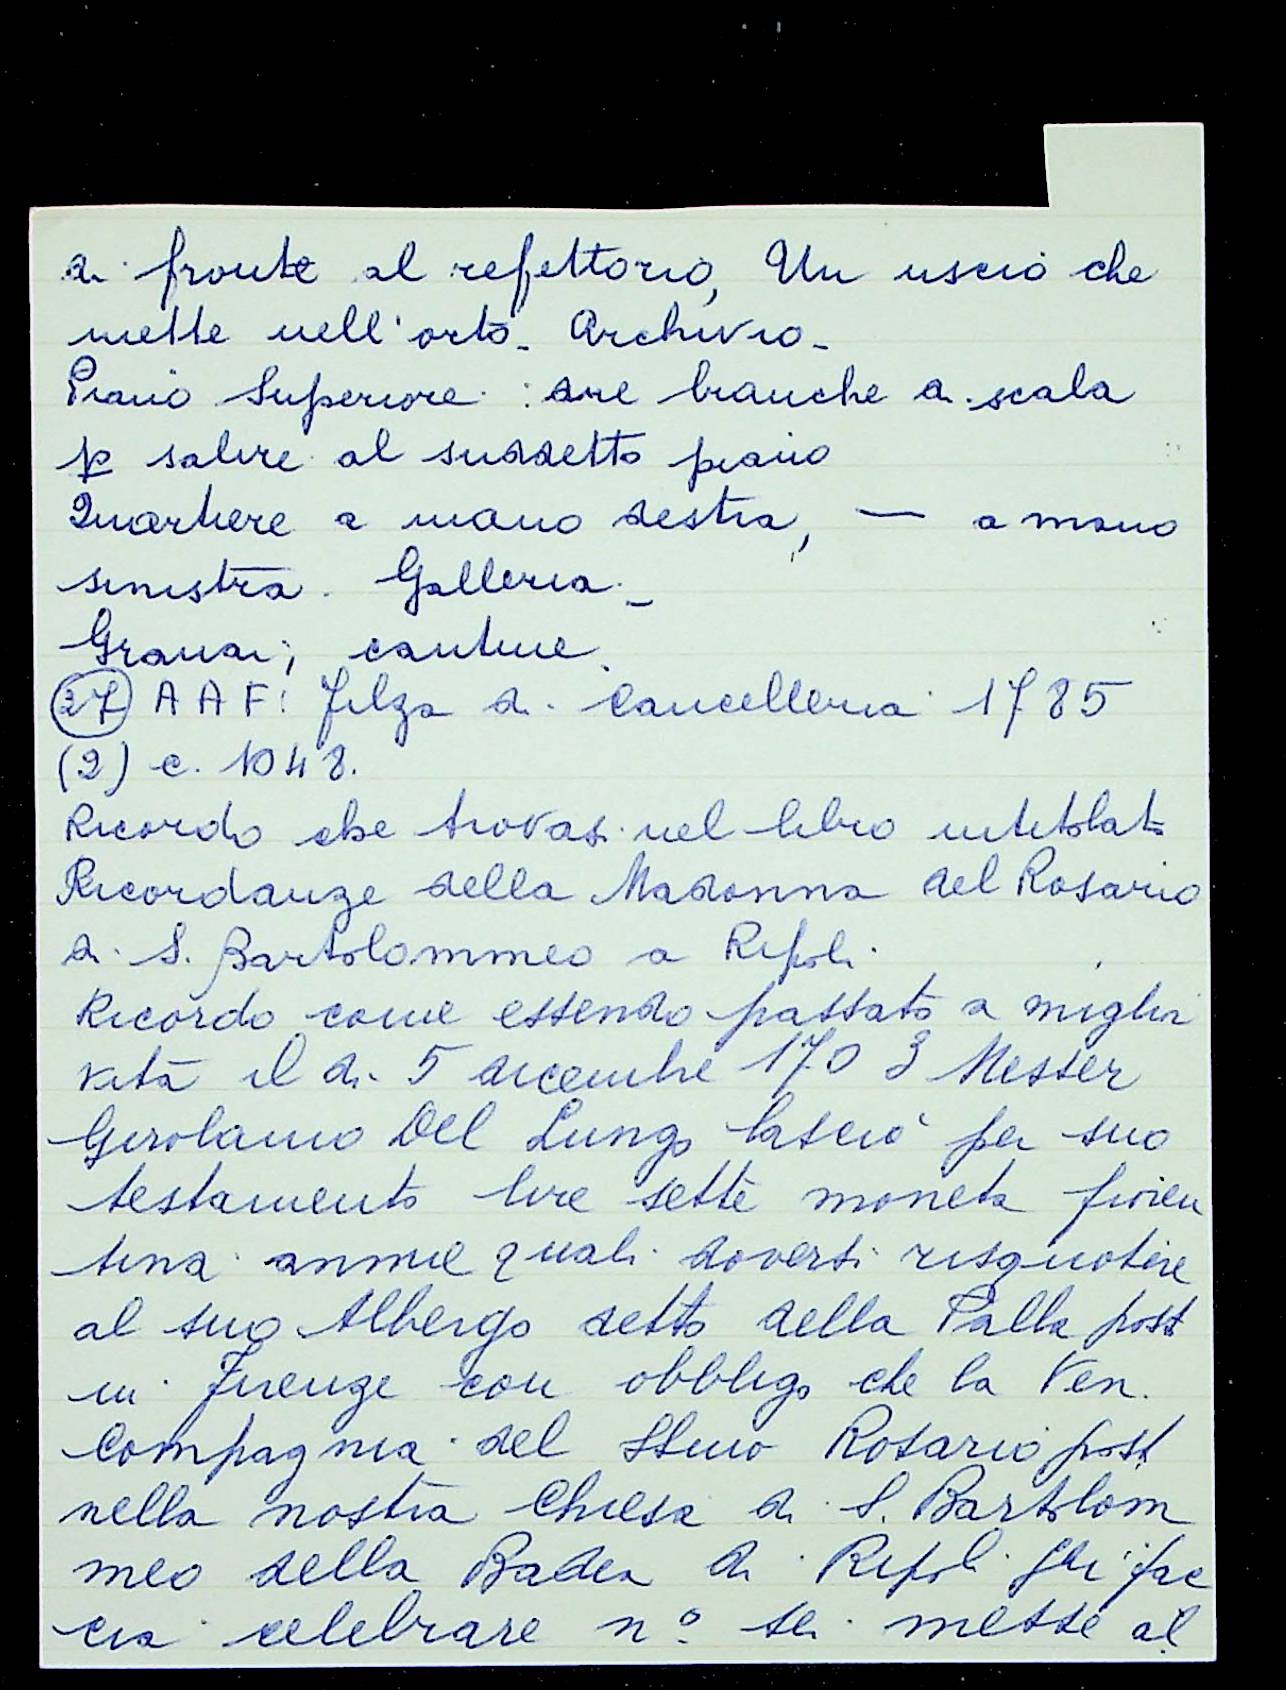 di fronte al refettorio, Un uscio che
mette nell'orto - Archivio -
Piano Superiore : due branche di scala
p salire al suddetto piano
Quartiere a mano destra, — a mano
sinistra. Galleria. -
Granai, cantine.
27 A A F: Filza di Cancelleria 1785
(2) c. 1048.
Ricordo che trovasi nel libro intitolato
Ricordanze della Madonna del Rosario
di S. Bartolommeo a Ripoli.
Ricordo come essendo passato a miglior
vita il di 5 dicembre 1703 Messer
Girolamo Del Lungo lasciò per suo
testamento lire sette moneta fioren
tina annue quali doversi risquotere
al suo Albergo detto della Palla post
in Firenze con obbligo che la Ven.
Compagnia del SSmo Rosario post
nella nostra Chiesa di S. Bartolom
meo della Badia di Ripoli gli fac
cia celebrare n° sei messe al